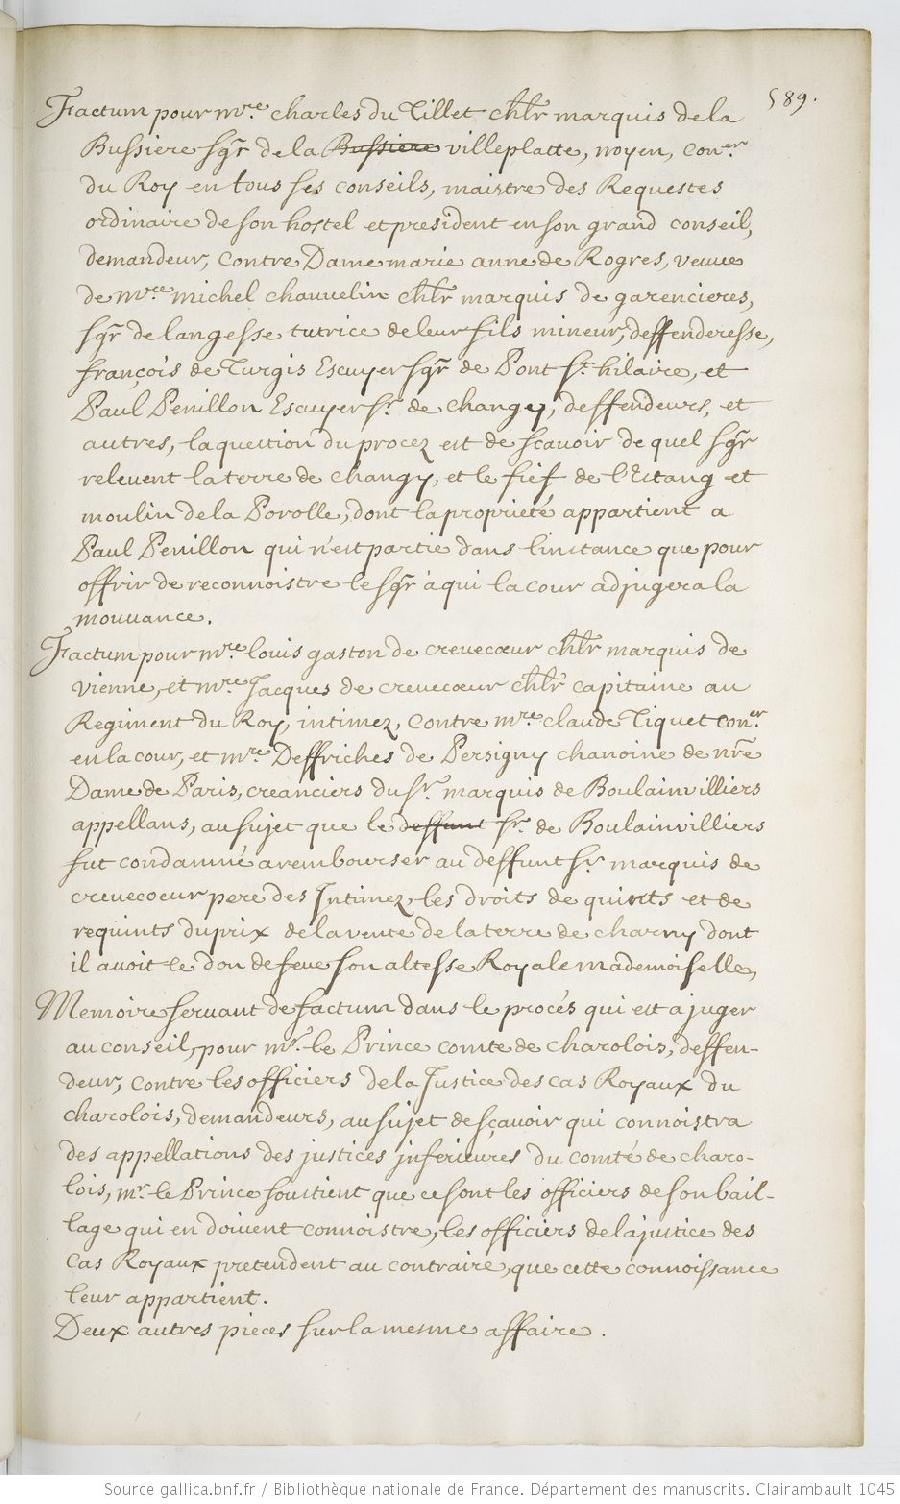 589.
Factum pour mre. charles du Tillet chlr marquis de la
Bussiere sgr de la Bussiere villeplatte, noyen, coner
du Roy en tous ses conseils, maistre des Requestes
ordinaire de son hostel et president en son grand conseil,
demandeur, contre Dame marie anne de Rogres, veuue
de mre michel chauuelin chlr marquis de garencieres,
sgr de langesse tutrice de leur fils mineur, deffenderesse,
françois de Turgis Escuyer sgr de Pont st. hilaire, et
Paul Penillon Escuyer sr. de changy, deffendeurs, et
autres, la question du procez est de scauoir de quel sgr
releuent la terre de changy, et le fief de l'Estang et
moulin de la Porolle, dont la proprieté appartient a
Paul Penillon qui n'est partie dans l'instance que pour
offrir de reconnoistre le sgr à qui la cour adjugera la
mouuance.
Factum pour mre. louis gaston de creuecœur chlr marquis de
vienne, et mre. Jacques de creuecœur chlr capitaine au
Regiment du Roy, intimez, contre mre. claude Tiquet coner
en la cour, et mre. Deffriches de Persigny chanoine de nre
Dame de Paris, creanciers du sr. marquis de Boulainuilliers
appellans, au sujet que le deffunt sr. de Boulainvilliers
fut condamné a rembourser au deffunt sr. marquis de
creuecoeur pere des Intimez les droits de quints et de
requints du prix de la vente de la terre de charny dont
il auoit le don de feue son altesse Royale mademoiselle,
Memoire seruant de factum dans le procés qui est a juger
au conseil, pour mr. le Prince comte de charolois, deffen-
deur, contre les officiers de la Justice des cas Royaux du
charolois, demandeurs, au sujet de sçauoir qui connoistra
des appellations des justices inferieures du comté de charo-
lois, mr. le Prince soustient que ce sont les officiers de son bail-
lage qui en doiuent connoistre, les officiers de la justice des
cas Royaux pretendent au contraire, que cette connoissance
leur appartient.
Deux autres pieces sur la mesme affaire.
Source gallica.bnf.fr / Bibliothèque nationale de France. Département des manuscrits. Clairambault 1045